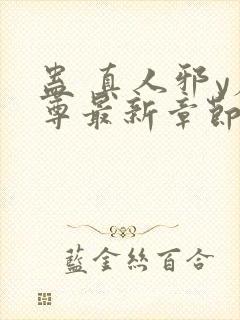 蛊真人邪y
尊最新章節
藍金絲百合